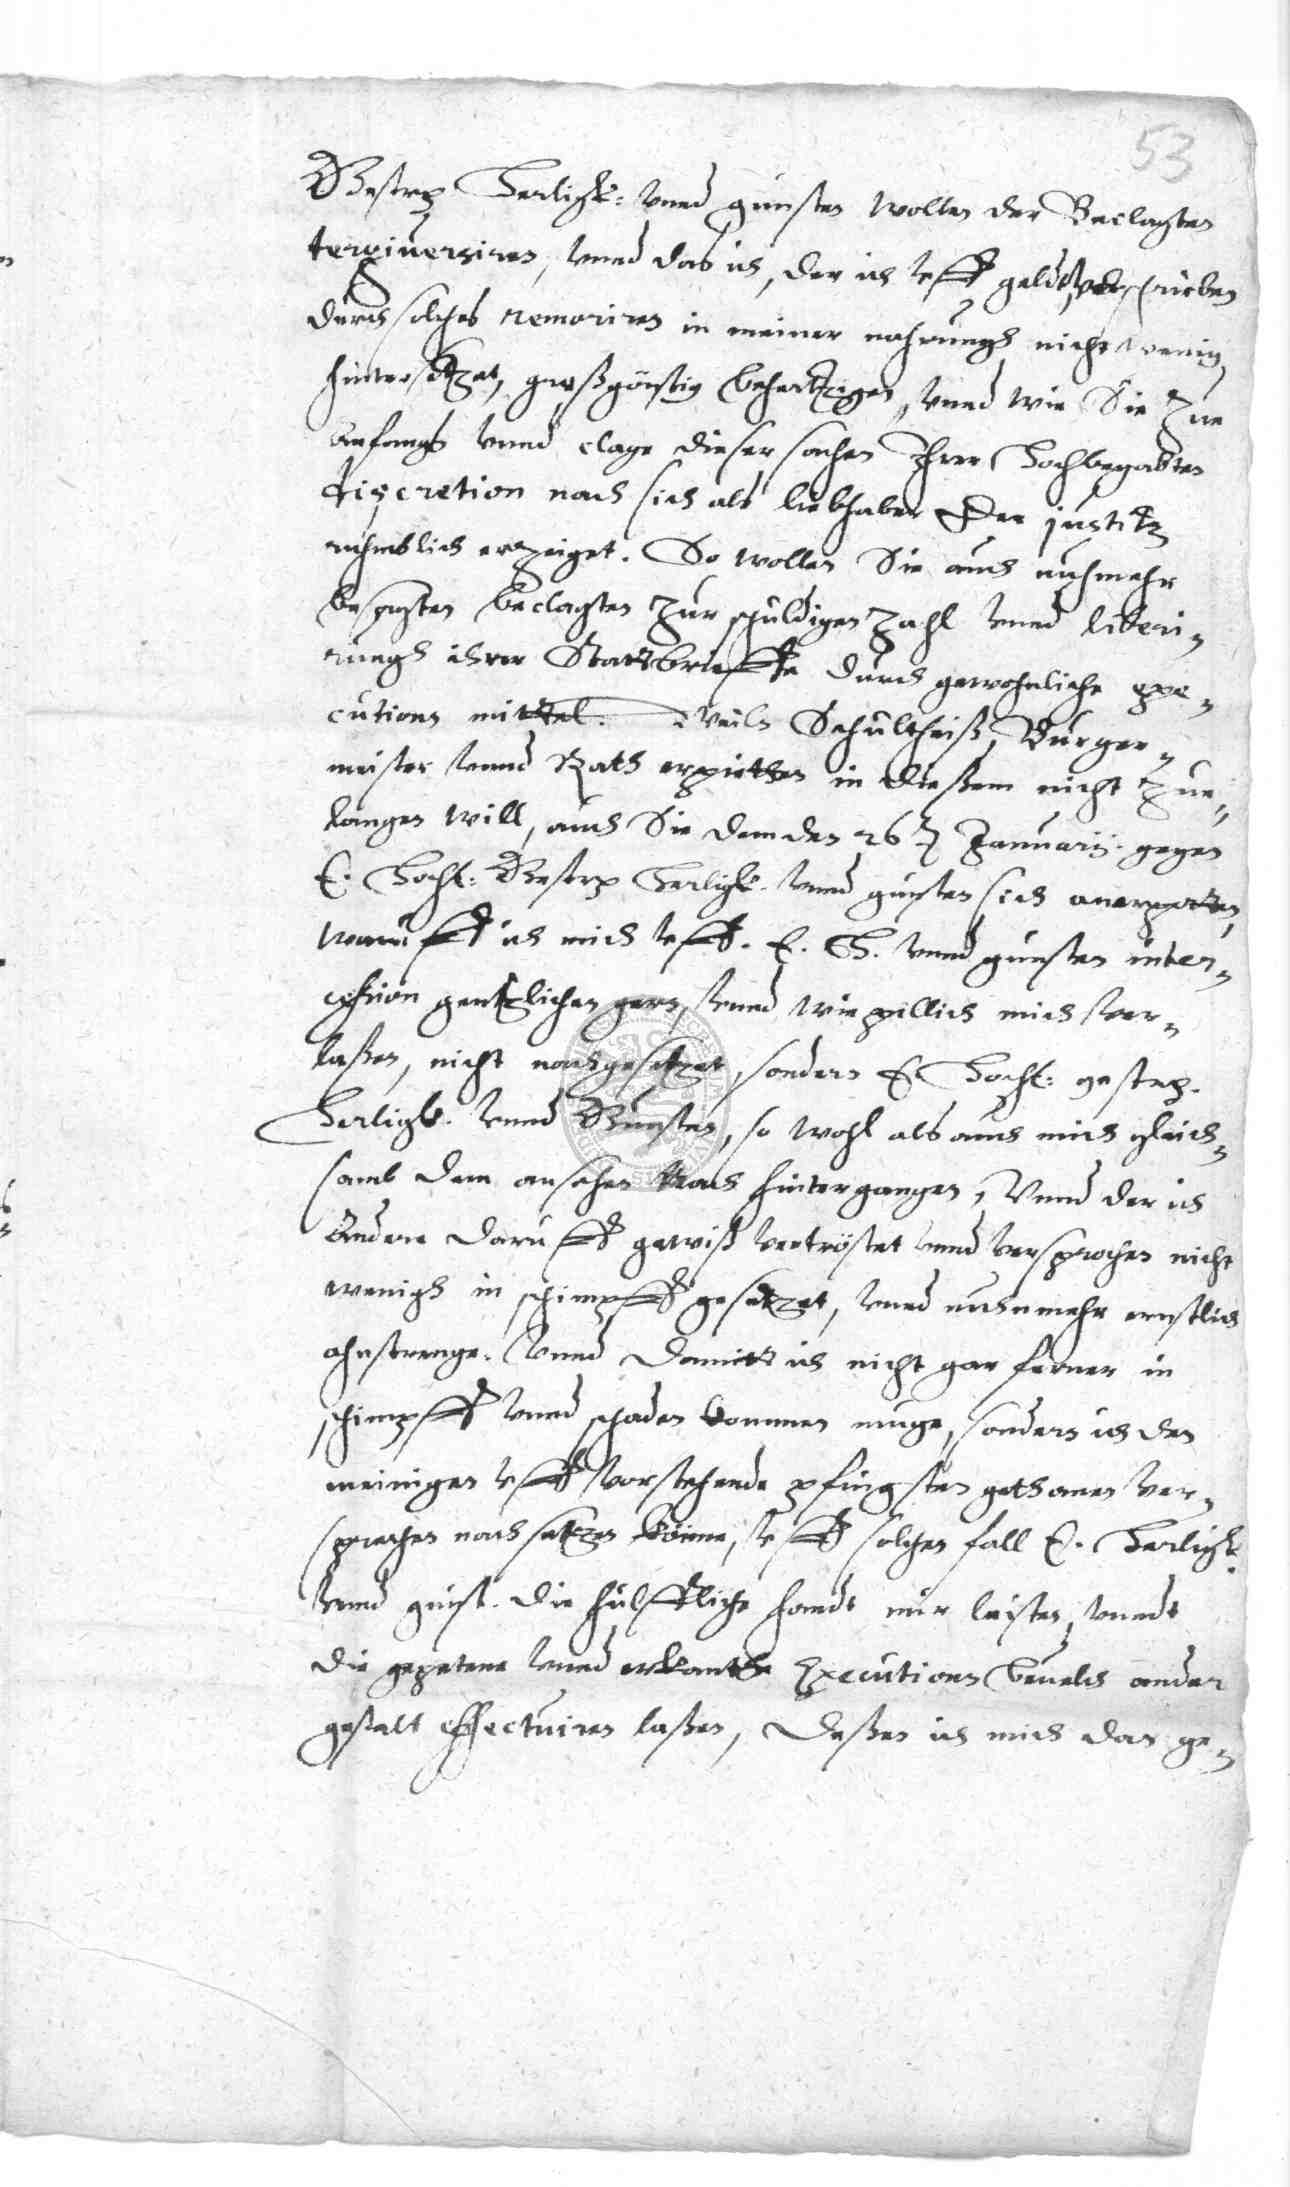 53
Gestrg Herligk: vnnd gunsten wollen der Beclagten
tergiuersiren, vnnd das ich, der ich vff geldt verschrieben
durch solches remoriren in meiner nahrungh nicht wenig
hintersetzet, großgönstig behertzigen, vnnd wie Sie zue
anfangh vnnd clage dieser sachen Ihrer Hochbegabten
discretion nach sich als liebhaber der justitz
ruhmblich erzeiget. So wollen Sie auch nuhmehr
besagten beclagten zur schuldigen zahl vnnd liberi-
rungh ihrer Stattbrieffe durch gewohnliche exe-
cutions mittel. Weiln Schultheiß, Burger-
meister vnnd Rath erpiethen in dießem nicht zue-
langen will, auch Sie dem den 26 Januarij gegen
E. Hochl: Gestrg Herligk. vnnd gunsten sich anerpotten,
warauff ich mich vff. E. H. vnnd gunsten inter-
cession gentzlichen gern, vnnd wie pillich mich ver-
laßen, nicht nachgesetzet, sondern E. Hochl: gestrg.
Herligk. vnnd Gunsten, so wohl als auch mich gleich-
samb dem ansehen nach hintergangen, Vnnd der ich
Andere daruff gewiß vertröstet vnnd versprochen nicht
wenigh in schimpff gesetzet, vnnd nuhnmehr ernstlich
ahnstrenge. Vnnd damitt ich nicht gar ferner in
schimpff vnnd schaden kommen muge, sondern ich den
meinigen vff vorstehende pfingsten gethanen ver-
sprechen nach setzen könne, vff solchen fall E. Herligk.
vnnd gunst. die hülffliche handt mir leisten, vnndt
die gepetene vnnd erkanthe Executions beuelch ander
gestalt effectuiren laßen, deßen ich mich dan ge-